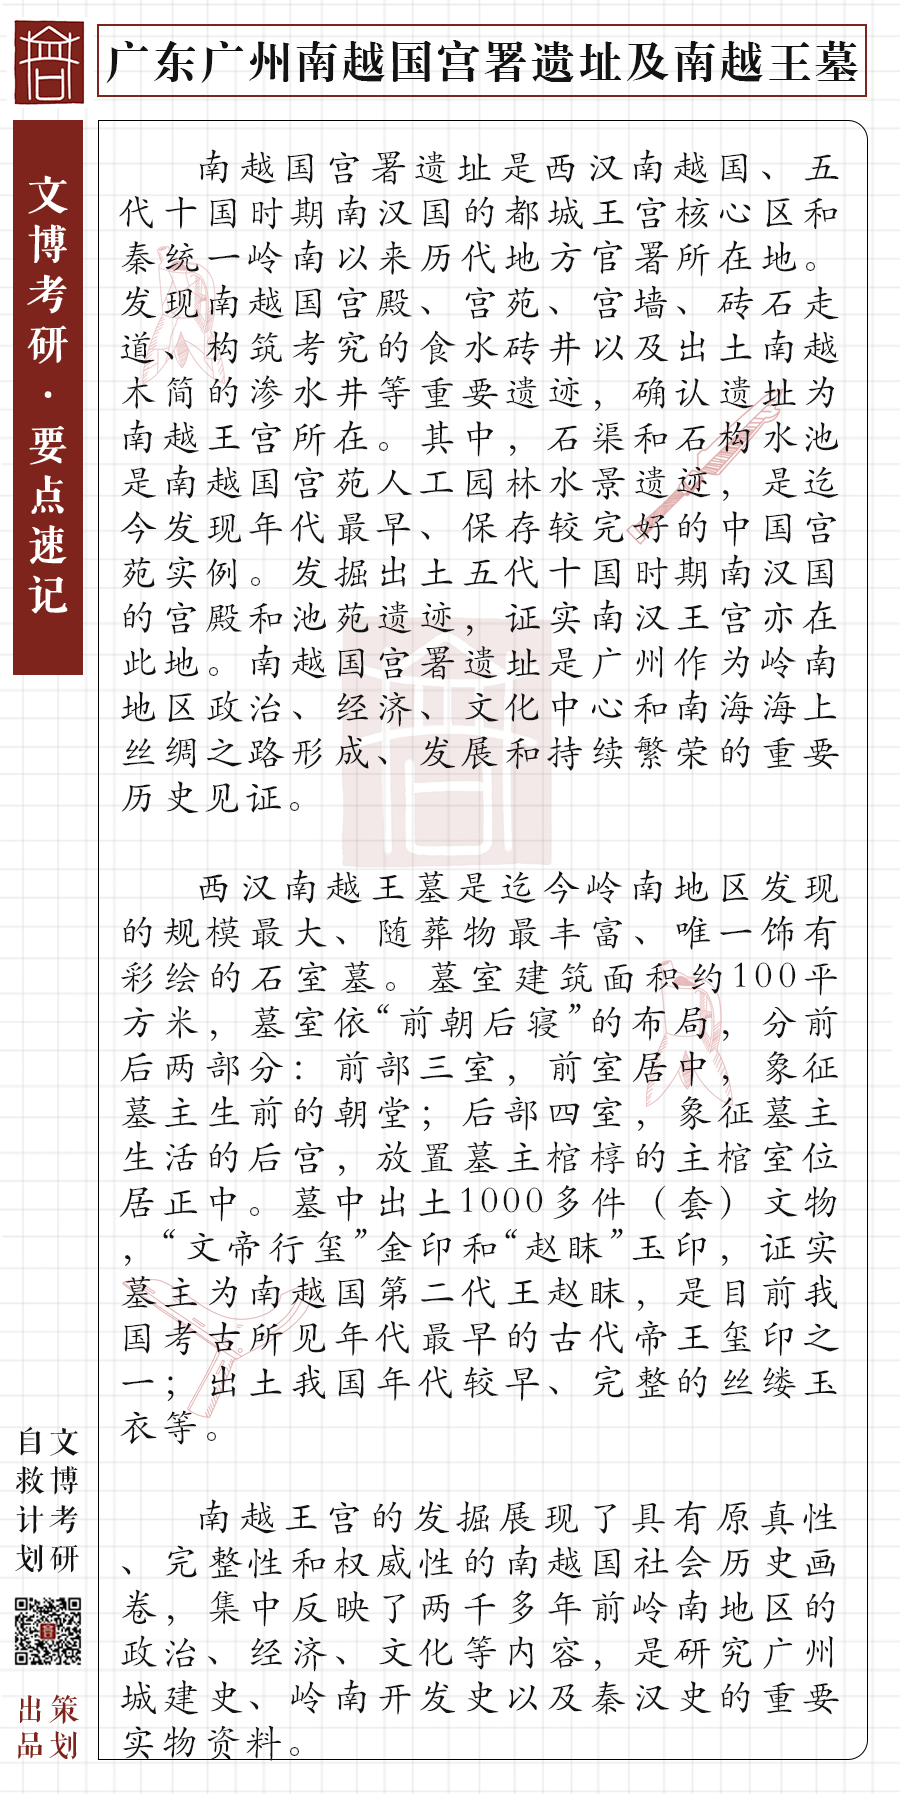 广东广州南越国宫署遗址及南越王墓
文博考研·要点速记
南越国宫署遗址是西汉南越国、五
代十国时期南汉国的都城王宫核心区和
秦统一岭南以来历代地方官署所在地。
发现南越国宫殿、宫苑、宫墙、砖石走
道、构筑考究的食水砖井以及出土南越
木简的渗水井等重要遗迹，确认遗址为
南越王宫所在。其中，石渠和石构水池
是南越国宫苑人工园林水景遗迹，是迄
今发现年代最早、保存较完好的中国宫
苑实例。发掘出土五代十国时期南汉国
的宫殿和池苑遗迹，证实南汉王宫亦在
此地。南越国宫署遗址是广州作为岭南
地区政治、经济、文化中心和南海海上
丝绸之路形成、发展和持续繁荣的重要
历史见证。
西汉南越王墓是迄今岭南地区发现
的规模最大、随葬物最丰富、唯一饰有
彩绘的石室墓。墓室建筑面积约100平
方米，墓室依“前朝后寝”的布局，分前
后两部分：前部三室，前室居中，象征
墓主生前的朝堂；后部四室，象征墓主
生活的后宫，放置墓主棺椁的主棺室位
居正中。墓中出土1000多件（套）文物
，“文帝行玺”金印和“赵眜”玉印，证实
墓主为南越国第二代王赵眜，是目前我
国考古所见年代最早的古代帝王玺印之
一；出土我国年代较早、完整的丝缕玉
衣等。
南越王宫的发掘展现了具有原真性
、完整性和权威性的南越国社会历史画
卷，集中反映了两千多年前岭南地区的
政治、经济、文化等内容，是研究广州
城建史、岭南开发史以及秦汉史的重要
实物资料。
文博考研
自救计划
策划
出品